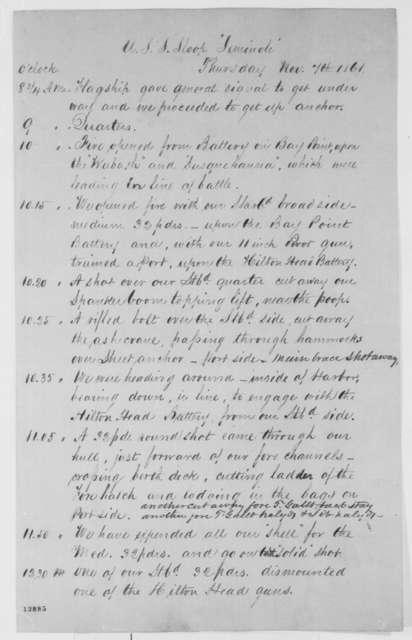 U. S. S. Sloop "Seminole"
O'clock Thursday Nov. 7th 1861
8 3/4 A.M. Flagship gave general signal to get under
way and we proceeded to get up anchor.
9 " Quarters.
10 " Fire opened from Battery on Bay Point, upon
the "Wabash" and "Susquehanna", which were
leading line of battle.
10.15 " We opened fire with our Starbd broadside -
medium 32 pdrs. - upon the Bay Point
Battery and, with our 11 inch Pivot gun,
trained a Port, upon the Hilton Head Battery.
10.20 " A shot over our Stbd quarter cut away our
Spanker boom topping lift, near the poop.
10.25 " A rifled bolt over the Stbd side, cut away
the ash crane, passing through hammocks
over Sheet anchor - Port side - Main brace shot away
10.35 " We were heading around - inside of Harbor,
bearing down, in line, to engage with the
Hilton Head Battery, from our Stbd side.
11.05 " A 32 pdr round shot came through our
hull, just forward of our fore channels -
crossing birth deck, cutting ladder of the
Fore hatch and lodging in the bags on
Port side. another cut away fore T. Gallt back stay
another fore T. Gallt halyds &
11.50 " We have expended all our "shell" for the
Med. 32 pdrs. and go on with "solid" shot.
12.30 PM One of our Stbd 32 pdrs. dismounted
one of the Hilton Head guns.
12885